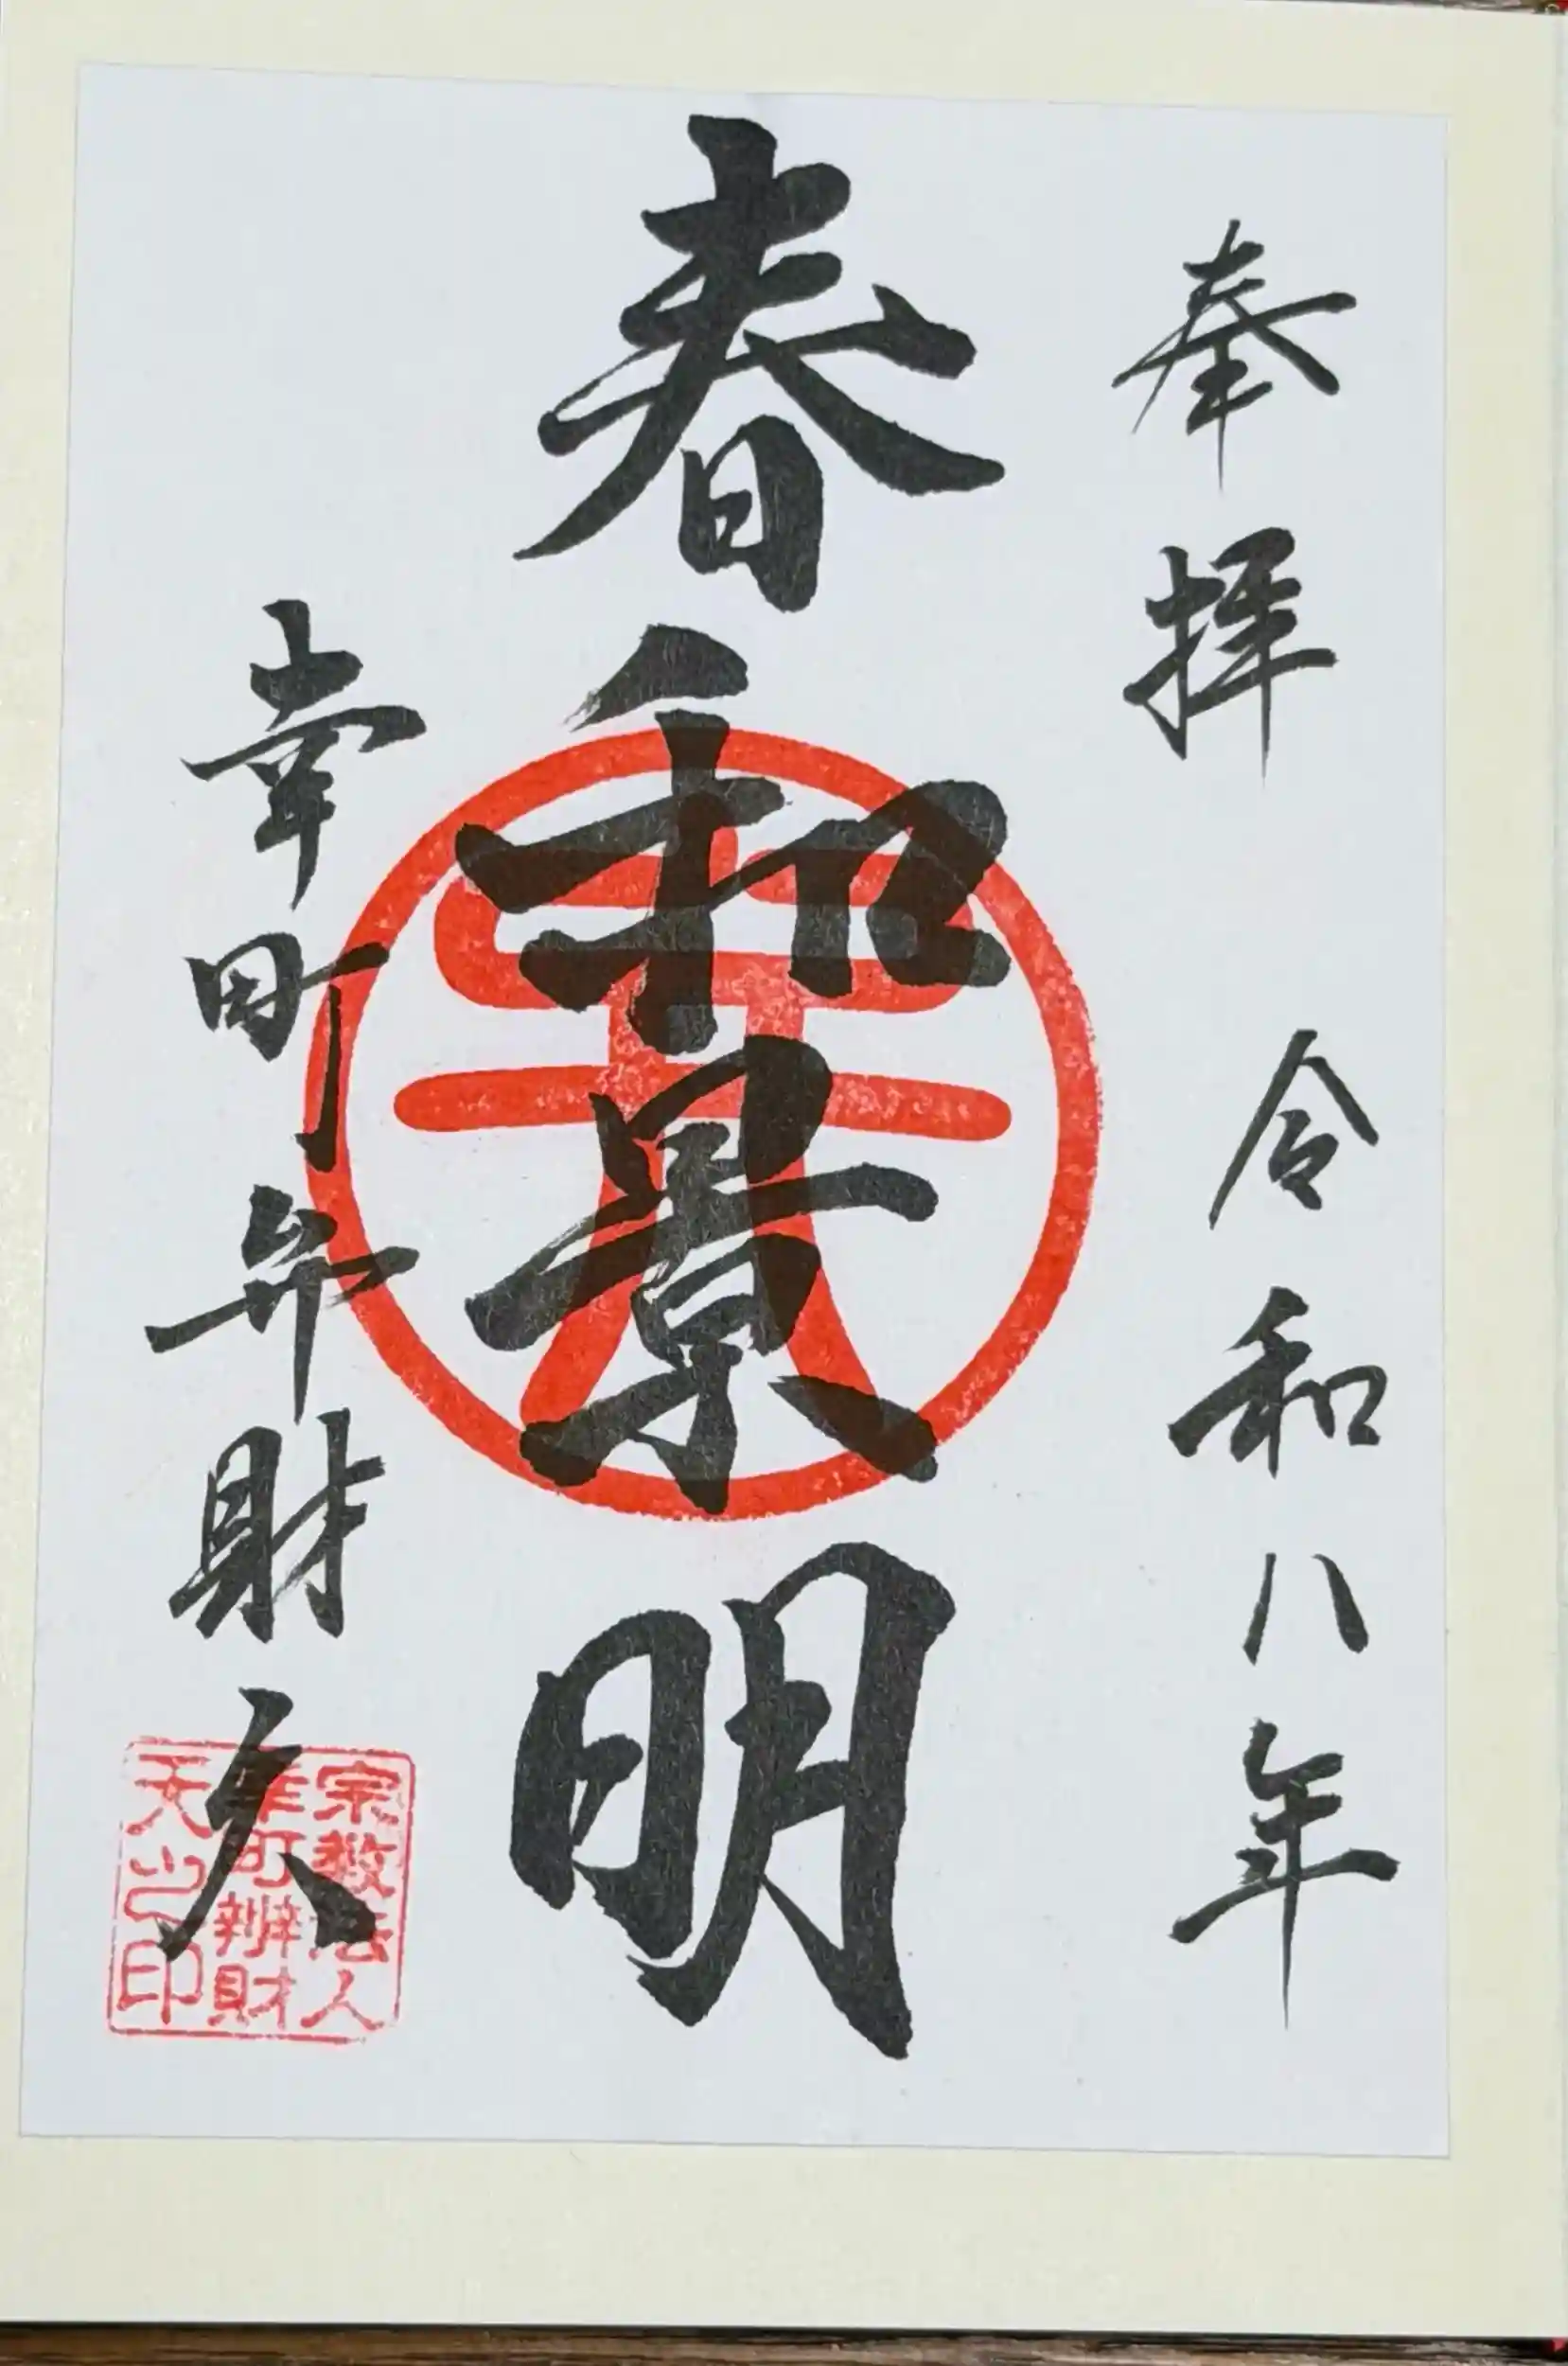 奉拝
令和八年
春和景明
幸町弁財天
宗教法人
幸町辨財
天之印